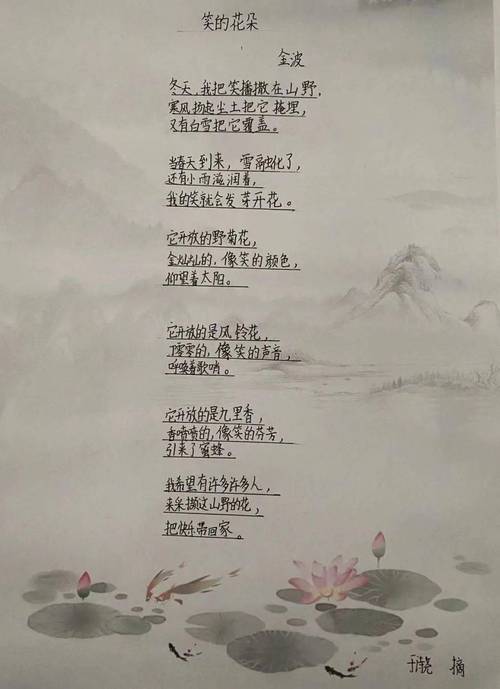 笑的花朵
金波
冬天,我把笑播撒在山野,
寒风扬起尘土把它掩埋,
又有白雪把它覆盖。
当春天到来,雪融化了,
还有小雨滋润着,
我的笑就会发芽开花。
它开放的野菊花,
金灿灿的,像笑的颜色,
仰望着太阳。
它开放的是风铃花,
零零的,像笑的声音,
呼唤着歌哨。
它开放的是九里香,
香喷喷的,像笑的芬芳,
引来了蜜蜂。
我希望有许多许多人,
来采撷这山野的花,
把快乐带回家。
于 摘